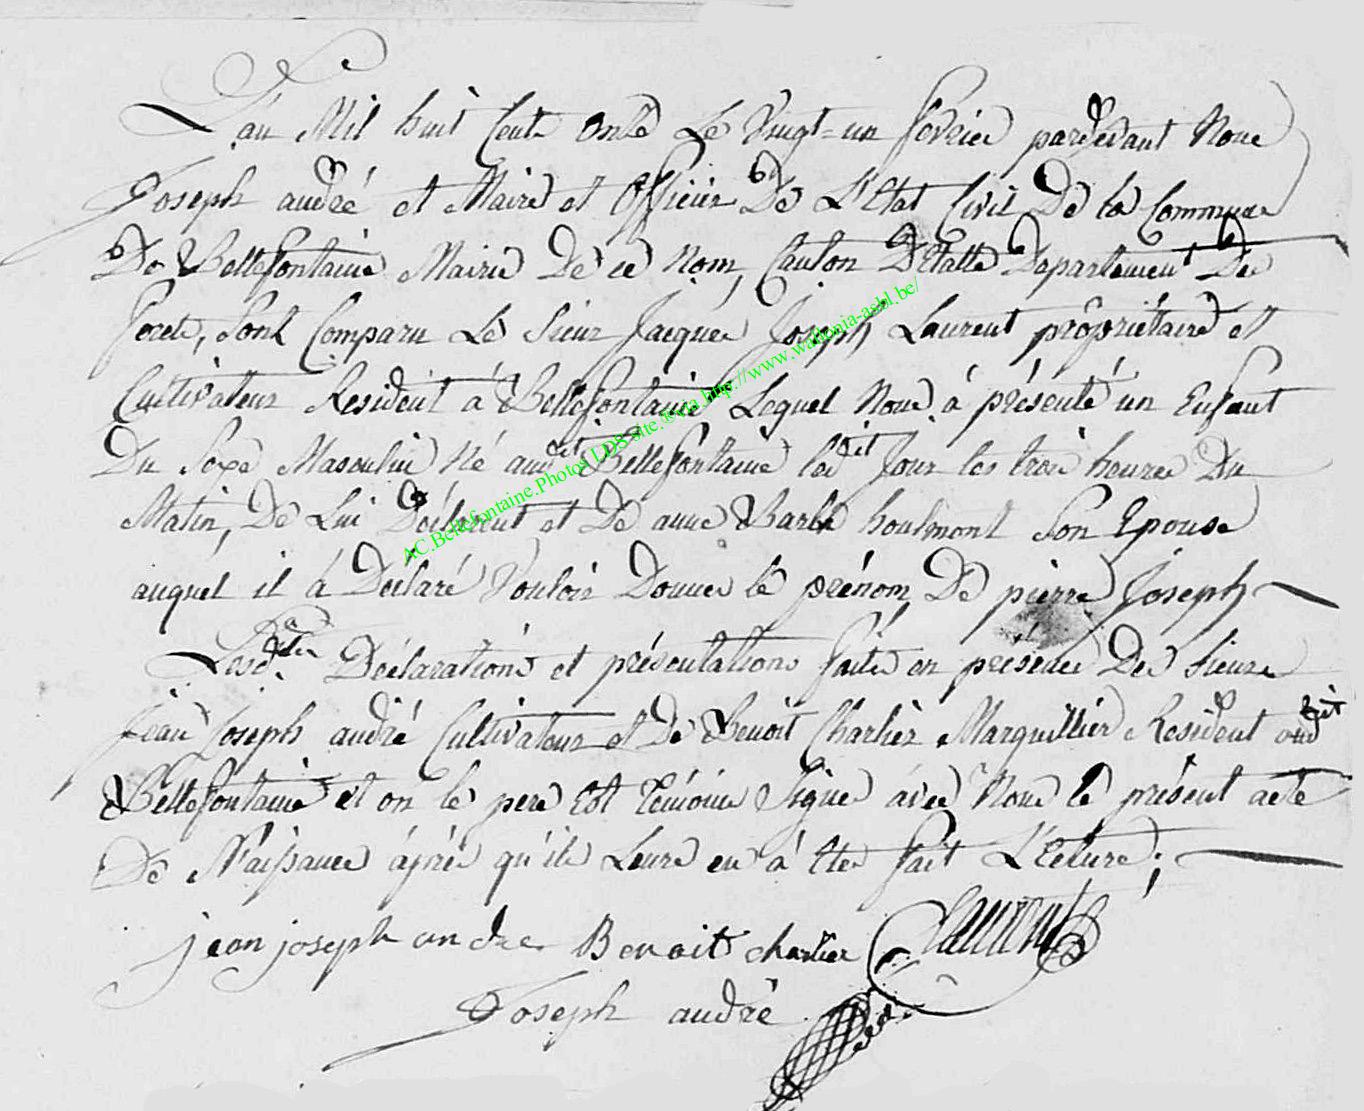 L'an Mil huit Cent onze Le Vingt-un fevrier pardevant Nous
Joseph andré et Maire et Officier De L'Etat Civil De la Commune
De Bellefontaine Mairie De ce Nom, Canton D'Etalle Departement Des
forets, sont Comparu Le Sieur Jacques Joseph Laurent propriétaire et
Cultivateur Resident á Bellefontaine Lequel Nous á présenté un Enfant
Du Sexe Masculin Né audit Bellefontaine ledit Jour les trois heures Du
Matin, De Lui Déclarant et De anne Barbe houlmont Son Epouse
auquel il á Déclaré Vouloir Donner le prénom De pierre Joseph
Lesdites Déclarations et présentations faite en présence Des Sieurs
Jean Joseph andré Cultivateur et De Benoit Charlier Marguillier Resident audit
Bellefontaine et on le pere Est Témoins Signes avec Nous le présent acte
De Naissance áprés qu'ils Leurs en á Eter fait L'Ecture;
jean joseph andre Benoit charlier Laurent
Joseph andré
AC.Bellefontaine.Photos LDS site.©via http://www.wallonia-asbl.be/